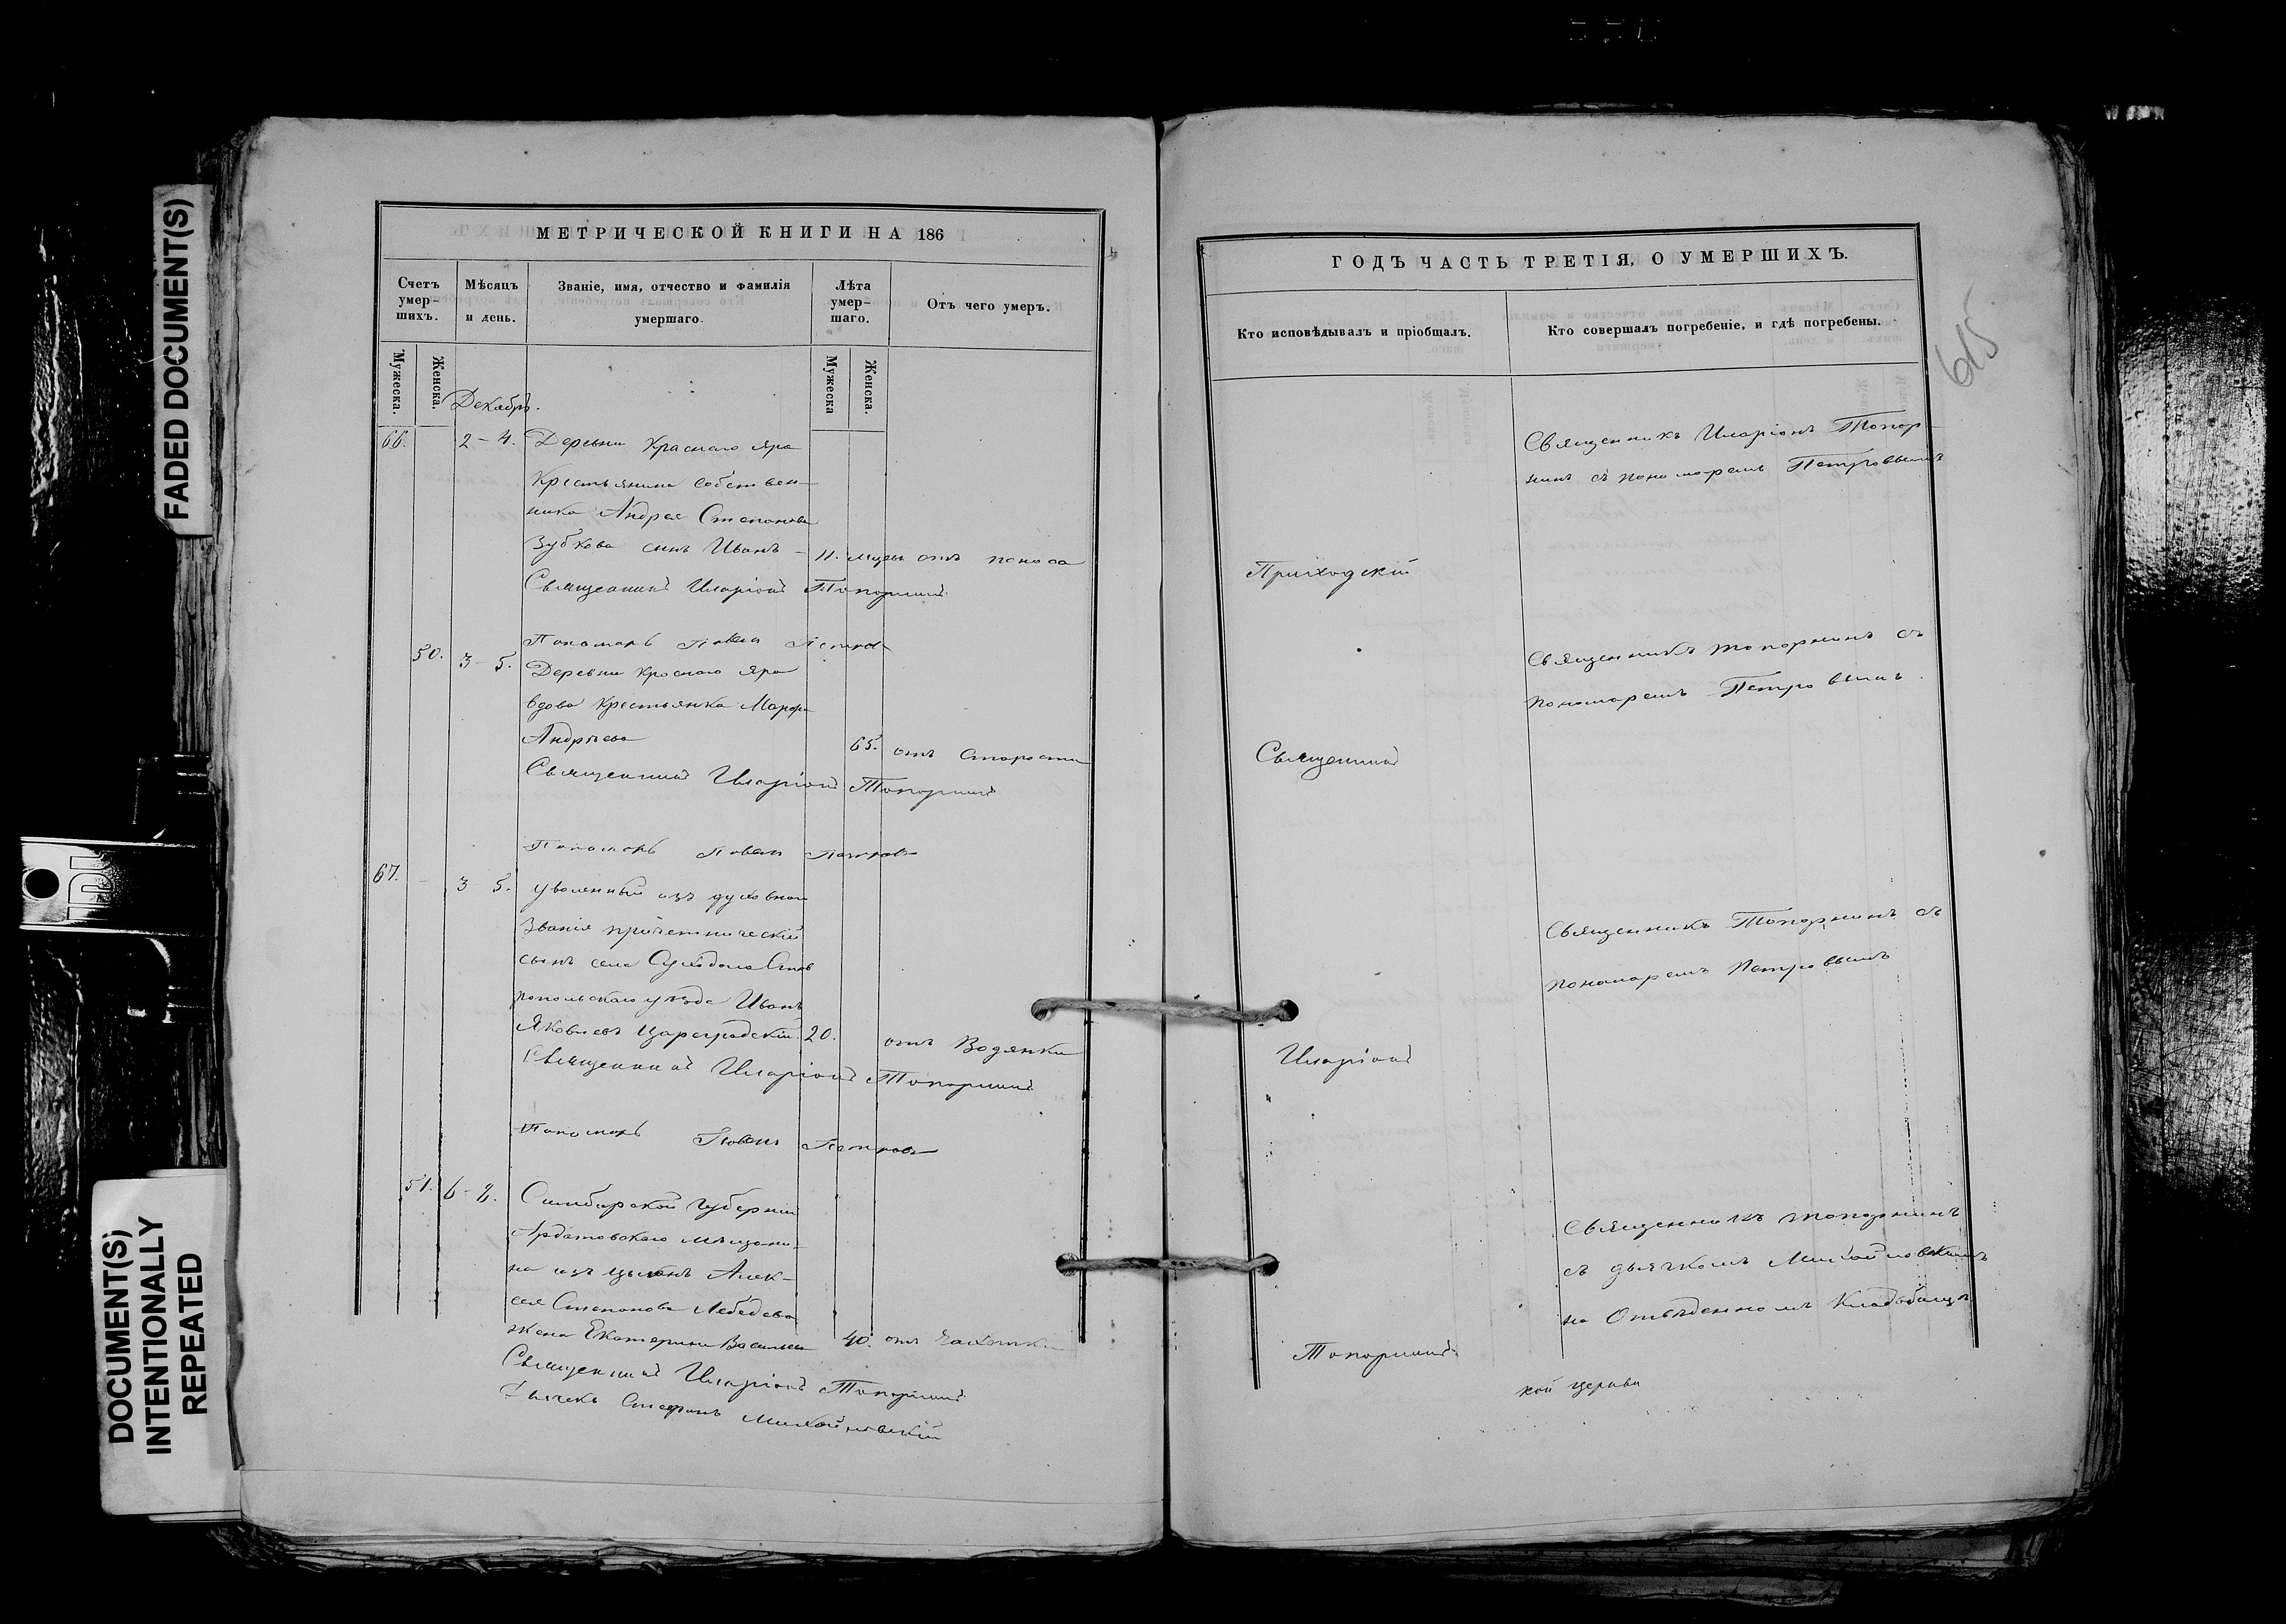 FADED DOCUMENT(S)
DOCUMENT(S)
INTENTIONALLY
REPEATED
МЕТРИЧЕСКОЙ КНИГИ НА 186
Счетъ умер-шихъ.
Мѣсяцъ и день.
Званіе, имя, отчество и фамилія умершаго.
Лѣта умер-шаго.
Отъ чего умеръ.
Мужеска.
Женска.
Мужеска
Женска.
Декабрь.
66. 2 – 4. Деревни Краснаго Яра
Крестьянина собствен-
ника Андрея Степанова
Зубкова сынъ Иванъ – 11. отъ поноса
Священникъ Иларіонъ Топорнинъ
Пономарь Павелъ Петровъ
50. 3 – 5. Деревни Краснаго Яра
вдова Крестьянка Марфа
Андрѣева 65. отъ старости
Священникъ Иларіонъ Топорнинъ
Пономарь Павелъ Петровъ
67. 3 5. уволенный изъ духовнаго
званія причетническій
сынъ села Суходола Став
ропольскаго уѣзда Иванъ
Яковлевъ Цареградскій 20. отъ Водянки
Священникъ Иларіонъ Топорнинъ
Пономарь Павелъ Петровъ
51. 6 – 8. Симбирской губерніи
Ардатовскаго мѣщани-
на изъ Алек-
сея Степанова Лебедева
жена Екатерина Васильева 40. отъ Чахотки
Священникъ Иларіонъ Топорнинъ
Дьячекъ Стефанъ Михайловскій
ГОДЪ ЧАСТЬ ТРЕТІЯ, О УМЕРШИХЪ.
615
Кто исповѣдывалъ и пріобщалъ.
Кто совершалъ погребеніе, и гдѣ погребены.
Священникъ Иларіонъ Топор-
нинъ съ пономаремъ Петровымъ
Приходскій
Священникъ Топорнинъ съ
пономаремъ Петровымъ.
Священникъ
Священникъ Топорнинъ съ
пономаремъ Петровымъ
Иларіонъ
Священникъ Топорнинъ
съ дьячкомъ Михайловскимъ
на Отведенномъ Кладбищѣ
Топорнинъ
кой церкви